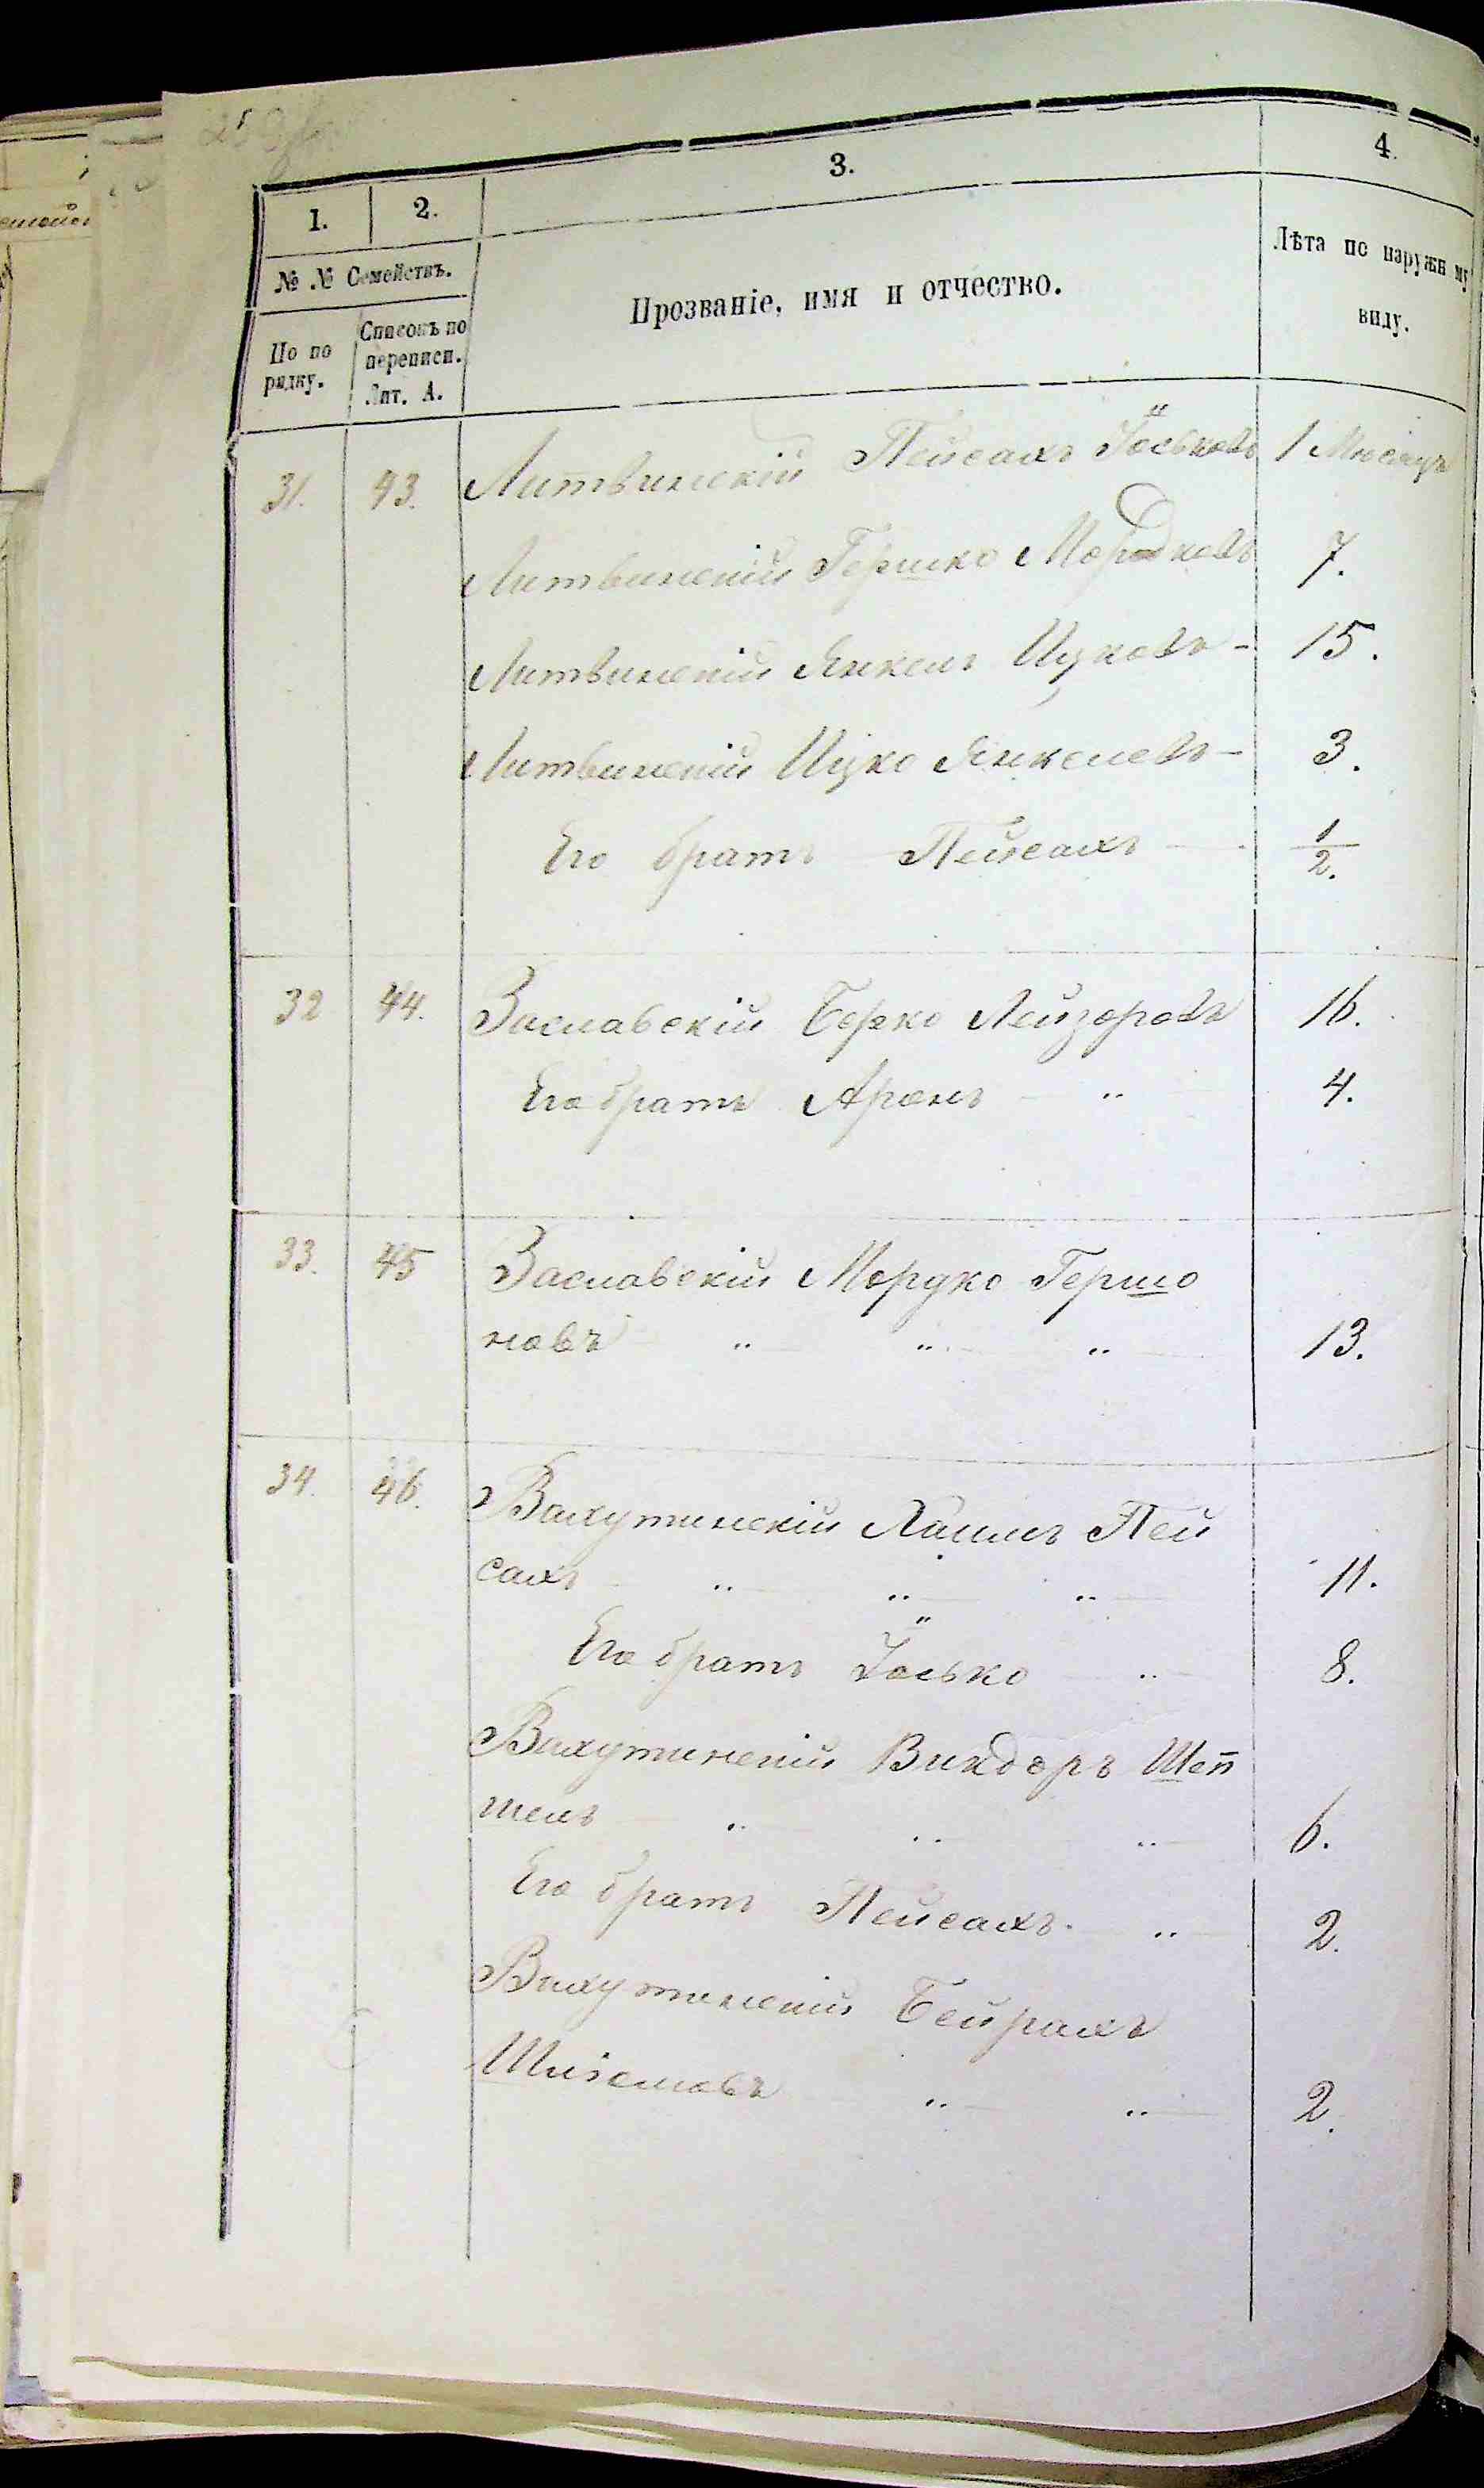 3.
4.
1. 2.
№ № Семействъ.
По по рядку.
Списокъ по переписи. Лит. А.
Прозваніе, имя и отчество.
Лѣта по наружн му виду.
31. 43. Литвинскій Пейсахъ Іоськовъ 1 Мѣсяцъ
Литвинскій Гершко Мордковъ 7.
Литвинскій Янкель Ицковъ - 15.
Литвинскій Ицко Янкелевъ - 3.
Его братъ Пейсахъ 1/2.
32 44. Заславскій Берко Лейзоровъ 16.
Его братъ Аронъ 4.
33. 45 Заславскій Мордко Гершо
новъ 13.
34. 46. Вахутинскій Хаимъ Пей
сахъ 11.
Его братъ Іосько 8.
Вахутинскій Викдоръ Шеп
шель 6.
Его братъ Пейсахъ. 2.
Вахутинскій Бейрахъ
2.